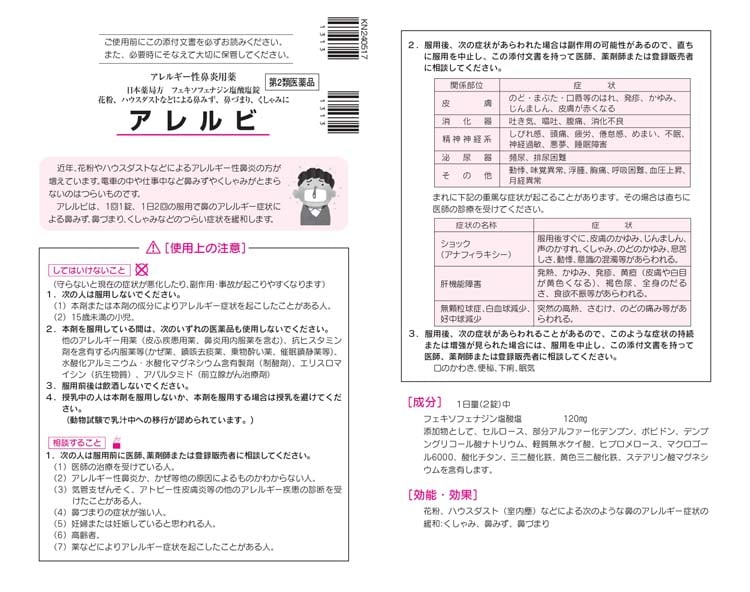 ご使用前にこの添付文書を必ずお読みください。
また、必要時にそなえて大切に保管してください。
1313
KN240517
アレルギー性鼻炎用薬
日本薬局方 フェキソフェナジン塩酸塩錠
第2類医薬品
花粉、ハウスダストなどによる鼻みず、鼻づまり、くしゃみに
アレルビ
1313
近年、花粉やハウスダストなどによるアレルギー性鼻炎の方が
増えています。電車の中や仕事中など鼻みずやくしゃみがとまら
ないのはつらいものです。
アレルビは、1回1錠、1日2回の服用で鼻のアレルギー症状に
よる鼻みず、鼻づまり、くしゃみなどのつらい症状を緩和します。
［使用上の注意］
してはいけないこと
（守らないと現在の症状が悪化したり、副作用・事故が起こりやすくなります）
1．次の人は服用しないでください。
（1）本剤または本剤の成分によりアレルギー症状を起こしたことがある人。
（2）15歳未満の小児。
2．本剤を服用している間は、次のいずれの医薬品も使用しないでください。
他のアレルギー用薬（皮ふ疾患用薬、鼻炎用内服薬を含む）、抗ヒスタミン
剤を含有する内服薬等（かぜ薬、鎮咳去痰薬、乗物酔い薬、催眠鎮静薬等）、
水酸化アルミニウム・水酸化マグネシウム含有製剤（制酸剤）、エリスロマ
イシン（抗生物質）、アパルタミド（前立腺がん治療剤）
3．服用前後は飲酒しないでください。
4．授乳中の人は本剤を服用しないか、本剤を服用する場合は授乳を避けてくだ
さい。
（動物試験で乳汁中への移行が認められています。）
相談すること
1．次の人は服用前に医師、薬剤師または登録販売者に相談してください。
（1）医師の治療を受けている人。
（2）アレルギー性鼻炎か、かぜ等他の原因によるものかわからない人。
（3）気管支ぜんそく、アトピー性皮膚炎等の他のアレルギー疾患の診断を受
けたことがある人。
（4）鼻づまりの症状が強い人。
（5）妊婦または妊娠していると思われる人。
（6）高齢者。
（7）薬などによりアレルギー症状を起こしたことがある人。
2．服用後、次の症状があらわれた場合は副作用の可能性があるので、直ち
に服用を中止し、この添付文書を持って医師、薬剤師または登録販売者
に相談してください。
関係部位 症 状
皮 膚 のど・まぶた・口唇等のはれ、発疹、かゆみ、
じんましん、皮膚が赤くなる
消 化 器 吐き気、嘔吐、腹痛、消化不良
精神神経系 しびれ感、頭痛、疲労、倦怠感、めまい、不眠、
神経過敏、悪夢、睡眠障害
泌 尿 器 頻尿、排尿困難
そ の 他 動悸、味覚異常、浮腫、胸痛、呼吸困難、血圧上昇、
月経異常
まれに下記の重篤な症状が起こることがあります。その場合は直ちに
医師の診療を受けてください。
症状の名称 症 状
ショック
（アナフィラキシー）
服用後すぐに、皮膚のかゆみ、じんましん、
声のかすれ、くしゃみ、のどのかゆみ、息苦
しさ、動悸、意識の混濁等があらわれる。
肝機能障害
発熱、かゆみ、発疹、黄疸（皮膚や白目
が黄色くなる）、褐色尿、全身のだる
さ、食欲不振等があらわれる。
無顆粒球症、白血球減少、
好中球減少
突然の高熱、さむけ、のどの痛み等があ
らわれる。
3．服用後、次の症状があらわれることがあるので、このような症状の持続
または増強が見られた場合には、服用を中止し、この添付文書を持って
医師、薬剤師または登録販売者に相談してください。
口のかわき、便秘、下痢、眠気
［成分］ 1日量（2錠）中
フェキソフェナジン塩酸塩 120mg
添加物として、セルロース、部分アルファー化デンプン、ポビドン、デンプ
ングリコール酸ナトリウム、軽質無水ケイ酸、ヒプロメロース、マクロゴー
ル6000、酸化チタン、三二酸化鉄、黄色三二酸化鉄、ステアリン酸マグネシ
ウムを含有します。
［効能・効果］
花粉、ハウスダスト（室内塵）などによる次のような鼻のアレルギー症状の
緩和：くしゃみ、鼻みず、鼻づまり